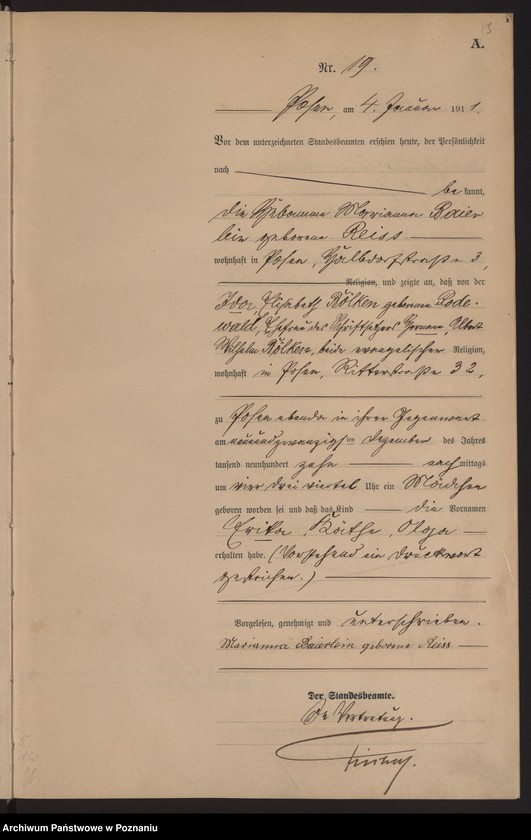 13
A.
Nr. 19.
Posen, am 4. Januar 1911.
Vor dem unterzeichneten Standesbeamten erschien heute, der Persönlichkeit
nach be kannt,
die Hebamme Marianna Baier
lein geborene Reiss
wohnhaft in Posen, Halbdorfstraße 3,
Religion, und zeigte an, daß von der
Ida, Elisabeth Rölken geborene Bode-
wald, Ehefrau des Schriftsetzers Hermann, Albert
Wilhelm Rölken, beide evangelischer Religion,
wohnhaft in Posen, Ritterstraße 32,
zu Posen ebenda in ihrer Gegenwart
am neunundzwanzigsten Dezember des Jahres
tausend neunhundert zehn nachmittags
um vier drei viertel Uhr ein Mädchen
geboren worden sei und daß das Kind die Vornamen
Erika, Käthe, Olga
erhalten habe. (Vorstehend ein Druckwort
gestrichen.)
Vorgelesen, genehmigt und unterschrieben.
Marianna Baierlein geborene Reiss
Der Standesbeamte.
In Vertretung.
Archiwum Państwowe w Poznaniu